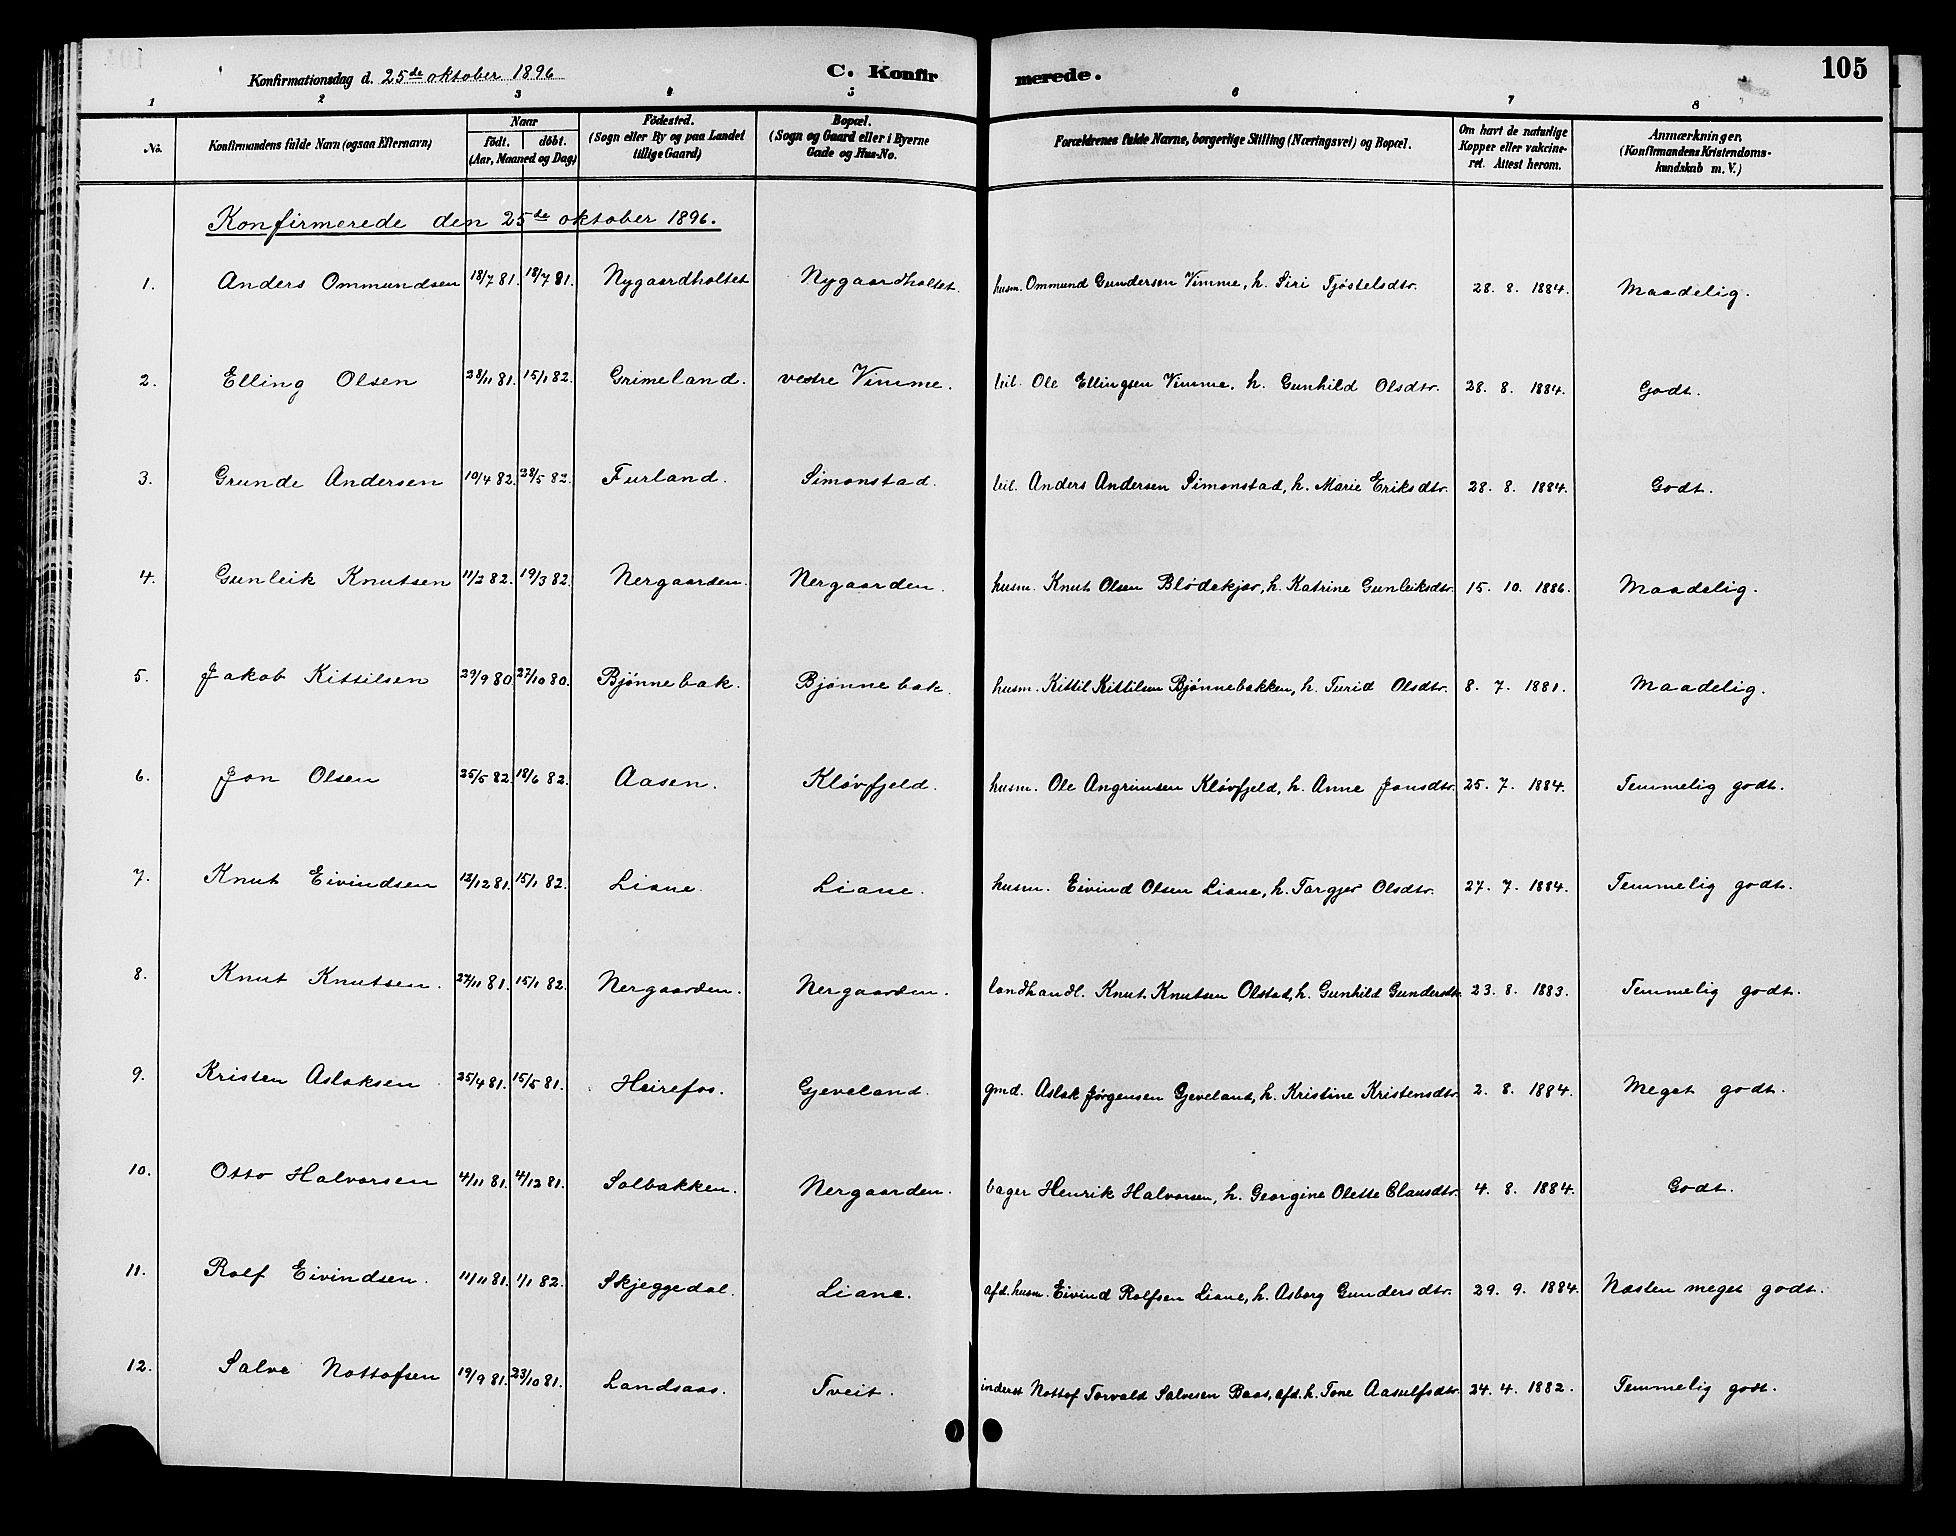 Konfirmationsdag d. 25de oktober 1896 C. Konfirmerede. 105
1 2 3 4 5 6 7 8
No. Konfirmandens fulde Navn (ogsaa Efternavn) Naar Födested. Bopæl. Forældrenes fulde Navne, borgerlige Stilling (Næringsvei) og Bopæl. Om havt de naturlige Anmærkninger.
födt. döbt. (Sogn eller By og paa Landet (Sogn og Gaard eller i Byerne Kopper eller vakcine- (Konfirmandens Kristendoms-
(Aar, Maaned og Dag) tillige Gaard) Gade og Hus-No. ret. Attest herom. kundskab m. V.)
Konfirmerede den 25de oktober 1896.
1. Anders Ommundsen 18/7 81. 18/7 81. Nygaardholtet Nygaardholtet. husm. Ommund Gundersen Vimme, h. Siri Tjøstelsdtr. 28. 8. 1884. Maadelig.
2. Elling Olsen 28/11 81. 15/1 82. Grimeland. vestre Vimme. leil. Ole Ellingsen Vimme, h. Gunhild Olsdtr. 28. 8. 1884. Godt.
3. Grunde Andersen 19/4 82. 28/5 82. Furland. Simonstad. leil. Anders Andersen Simonstad, h. Marie Eriksdtr. 28. 8. 1884. Godt.
4. Gunleik Knutsen 11/2 82. 19/3 82. Nergaarden. Nergaarden. husm. Knut Olsen Blødekjær, h. Katrine Gunleiksdtr. 15. 10. 1886. Maadelig.
5. Jakob Kittilsen 29/9 80. 27/10 80. Bjønnebak. Bjønnebak. husm. Kittil Kittilsen Bjønnebakken, h. Turid Olsdtr. 8. 7. 1881. Maadelig.
6. Jon Olsen 25/5 82. 18/6 82. Aasen. Kløvfjeld. husm. Ole Angrimsen Kløvfjeld, h. Anne Jonsdtr. 25. 7. 1884. Temmelig godt.
7. Knut Eivindsen 12/12 81. 15/1 82. Liane. Liane. husm. Eivind Olsen Liane, h. Torgjer Olsdtr. 27. 7. 1884. Temmelig godt.
8. Knut Knutsen. 27/11 81. 15/1 82. Nergaarden. Nergaarden. landhandl. Knut Knutsen Olstad, h. Gunhild Gundersdtr. 23. 8. 1883. Temmelig godt.
9. Kristen Aslaksen 25/4 81. 15/5 81. Heirefos. Gjeveland. gmd. Aslak Jørgensen Gjeveland, h. Kristine Kristensdtr. 2. 8. 1884. Meget godt.
10. Otto Halvorsen 4/11 81. 4/12 81. Solbakken. Nergaarden. bager Henrik Halvorsen, h. Georgine Olette Clausdtr. 4. 8. 1884. Godt.
11. Rolf Eivindsen. 11/11 81. 1/1 82. Skjeggedal. Liane. afd. husm. Eivind Rolfsen Liane, h. Asborg Gundersdtr. 29. 9. 1884. Næsten meget godt.
12. Salve Nottofsen 19/9 81. 23/10 81. Landsaas. Tveit. inderst Nottof Torvald Salvesen Baas, afd. h. Tone Aasulfsdtr. 24. 4. 1882. Temmelig godt.